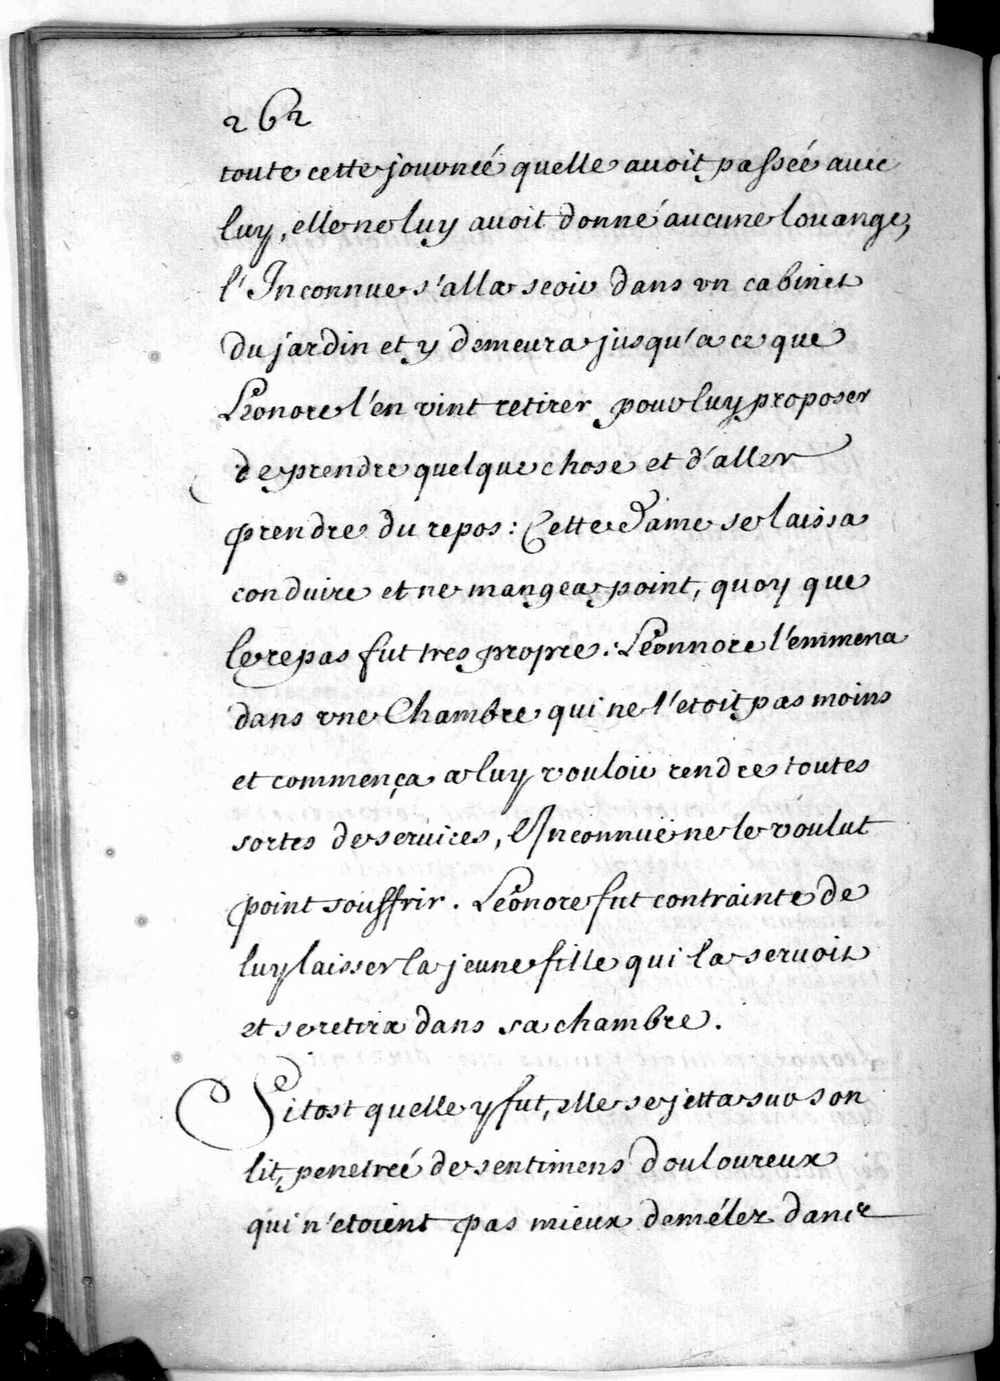 262
toute cette journeé quelle auoit passeé auec
luy, elle ne luy auoit donné aucune louange,
l'Inconnue s'alla seoir dans vn cabinet
du jardin et y demeura jusqu'a ce que
Léonore l'en vint retirer pour luy proposer
de prendre quelque chose et d'aller
prendre du repos: Cette Dame se laissa
conduire et ne mangea point, quoy que
le repas fut tres propre. Léonnore l'emmena
dans vne Chambre qui ne l'etoit pas moins
et commença a luy vouloir rendre toutes
sortes de seruices, l'Inconnue ne le voulut
point souffrir. Léonore fut contrainte de
luy laisser la jeune fille qui la seruoit
et se retira dans sa chambre.
Sitost quelle y fut, elle se jetta sur son
lit, penetreé de sentimens douloureux
qui n'etoient pas mieux deméler dans